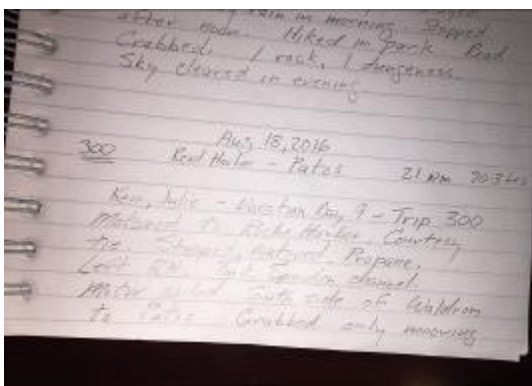 rain in morning. Stopped
after noon. Hiked in park. Read.
Crabbed. 1 rock, 1 dungeness.
Sky cleared in evening.
Aug 18, 2016
300 Reid Harbor - Patos 21 nm
Ken, Julie - Vacation Day 9 - Trip 300
Motored to Roche Harbor. Courtesy
tie. Shopped, Propane.
Left channel.
Motor sailed South side of Waldron
to Patos. Grabbed only mooring